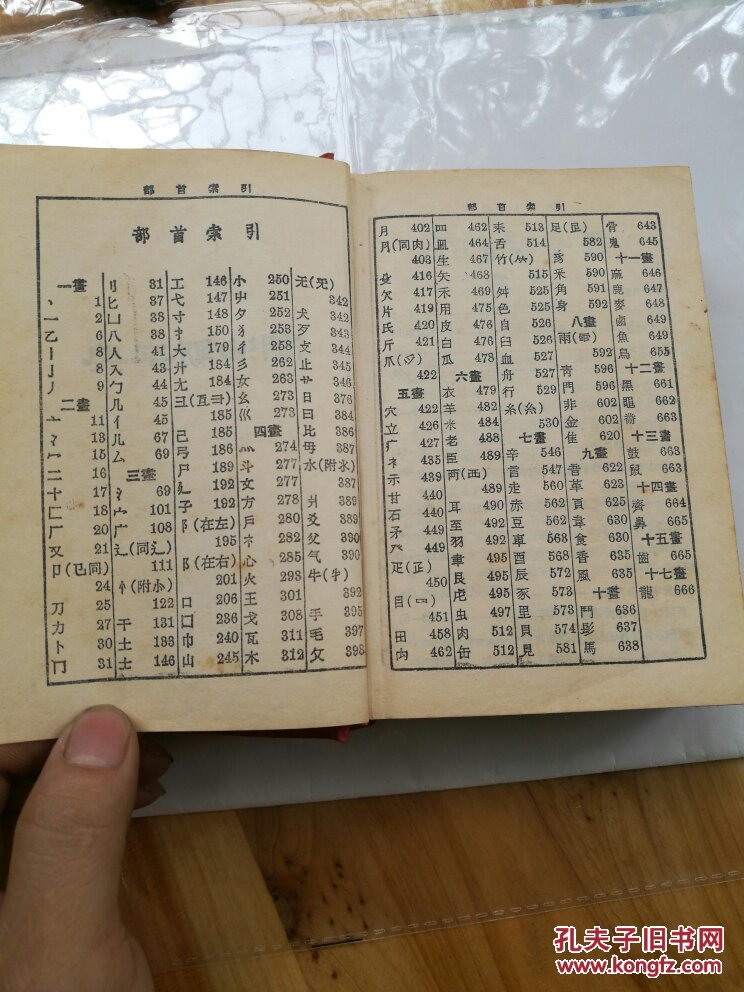 部首索引
部首索引
一畫
丶 1
一 2
乙 6
丨 8
亅 8
丿 9
二畫
亠 11
冫 13
冖 15
二 16
十 17
匚 18
厂 20
又 21
卩(㔾同)
24
刀 25
力 27
卜 30
冂 31
刂 31
匕 37
凵 38
八 38
人 41
入 43
勹 44
几 45
亻 45
儿 67
厶 69
三畫
氵 69
宀 101
广 108
辶(同辶)
111
忄(附㣺)
122
干 131
土 133
士 146
工 146
弋 147
寸 148
扌 150
大 179
廾 184
尢 184
彐(彑⺕)
185
己 185
弓 186
尸 189
廴 192
子 192
阝(在左)
195
阝(在右)
201
口 206
囗 236
巾 240
山 245
小 250
屮 251
夕 252
犭 253
彳 258
彡 262
女 263
幺 273
巛 273
四畫
灬 274
斗 277
文 277
方 278
戶 280
礻 282
心 285
火 293
王 301
戈 308
瓦 311
木 312
无(旡)
342
犬 342
歹 343
攴 344
止 345
日 376
曰 384
比 386
母 387
水(附氺)
387
爿 389
爻 389
父 390
气 390
牛(牜)
392
手 395
毛 397
攵 398
部首索引
月 402
⺼(同肉)
403
欠 417
片 419
氏 420
斤 421
爪(爫)
422
五畫
穴 422
立 426
疒 427
示 439
甘 440
石 440
矛 449
癶 449
疋(𤴔)
450
目(罒)
451
田 458
禸 462
四 462
皿 464
生 467
矢 468
禾 469
用 475
皮 476
白 476
瓜 478
六畫
衣 479
羊 482
米 484
老 488
臣 489
襾(西)
489
耳 490
至 492
羽 492
聿 495
艮 495
虍 495
虫 497
肉 512
缶 512
耒 513
舌 514
竹(⺮)
515
舛 525
色 525
自 526
臼 526
血 527
舟 527
行 529
糸(糹)
530
七畫
辛 546
言 547
走 560
赤 562
豆 562
車 563
酉 568
辰 572
豕 573
里 573
貝 574
見 581
足(𧾷)
582
豸 590
釆 590
角 591
身 592
八畫
雨(⻗)
592
靑 596
門 596
非 602
金 602
隹 620
九畫
音 622
革 623
頁 624
食 630
香 635
風 635
十畫
鬥 636
髟 637
馬 638
骨 643
鬼 645
十一畫
麻 646
鹿 648
麥 648
鹵 649
魚 649
鳥 655
十二畫
黑 661
黽 662
黹 663
十三畫
鼓 663
鼠 663
十四畫
齊 664
鼻 665
十五畫
齒 665
十七畫
龍 666
孔夫子旧书网
www.kongfz.com